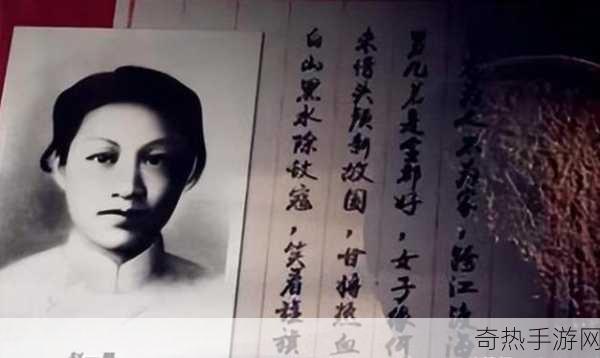 为人不为家，跨江渡海
男儿岂是全都好，女子缘何
未惜头颅新故国，甘将热血
白山黑水除敌寇，笑看旌旗
奇热手游网